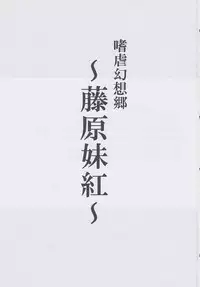 嗜虐幻想郷
〜藤原妹紅〜